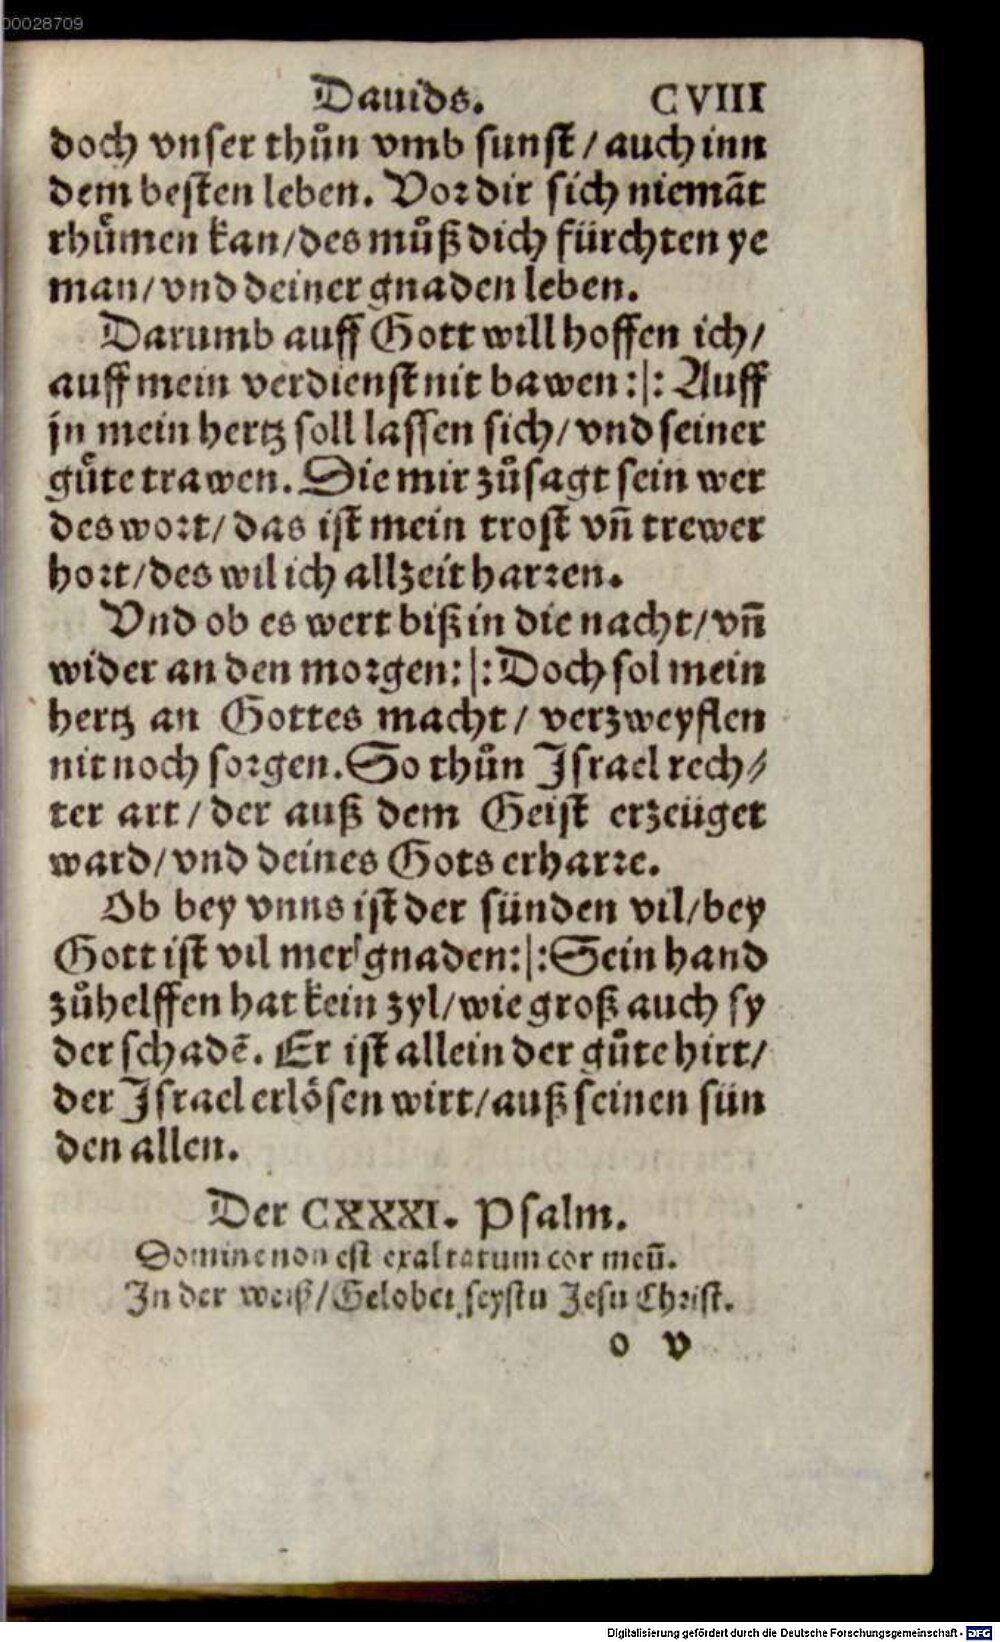 00028709
Dauids. CVIII
doch vnser thůn vmb sunst / auch inn
dem besten leben. Vor dir sich niemāt
rhůmen kan/des můß dich fürchten ye
man/vnd deiner gnaden leben.
Darumb auff Gott will hoffen ich/
auff mein verdienst nit bawen :|: Auff
jn mein hertz soll lassen sich/vnd seiner
gůte trawen. Die mir zůsagt sein wer
des wort/das ist mein trost vñ trewer
hort/des wil ich allzeit harren.
Vnd ob es wert biß in die nacht/vñ
wider an den morgen:|:Doch sol mein
hertz an Gottes macht / verzweyflen
nit noch sorgen.So thůn Israel rech⸗
ter art / der auß dem Geist erzeüget
ward/vnd deines Gots erharre.
Ob bey vnns ist der sünden vil/bey
Gott ist vil mer gnaden:|:Sein hand
zůhelffen hat kein zyl/wie groß auch sy
der schadē. Er ist allein der gůte hirt/
der Israel erlösen wirt/auß seinen sün
den allen.
Der CXXXI. Psalm.
Domine non est exaltatum cor meū.
In der weiß/Gelobet seystu Jesu Christ.
o v
Digitalisierung gefördert durch die Deutsche Forschungsgemeinschaft - DFG